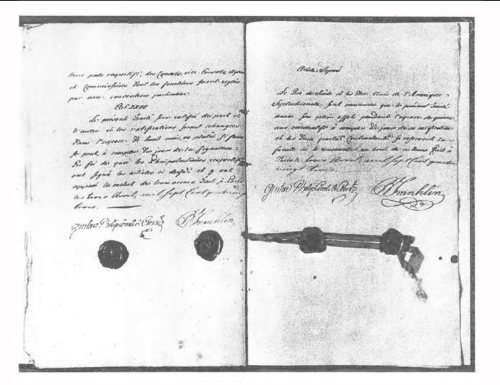 dans ports respectifs, des Consuls, vice Consuls, Agens
et Commissaires dont les fonctions seront réglées
par une convention particulière
Le présent Traité sera ratifié de part et
d'autre et les ratifications seront échangées
dans l'espace de huit mois, ou plustot si faire
se peut, à compter du jour de la signature.
En foi de quoi les Plénipotentiaires respectifs
ont signé les articles ci dessus, et y ont
apposé le cachet de leurs armes. Fait à Paris
le trois Avril, mil sept Cent quatre vingt
trois
Gustav Philip Comte de Creutz
B Franklin
Article Séparé
Le Roi de Suède et les Etats Unis de l'Amerique
Septentrionale sont convenus que le présent Traité
aura son plein effet pendant l'espace de quinze
ans consécutifs à compter du jour de sa ratification
et les deux parties Contractantes se réservent la
faculté de le renouveller au bout de ce tems. Fait à
Paris le trois Avril, mil sept Cent quatre
vingt trois
Gustav Philip Comte de Creutz
B Franklin